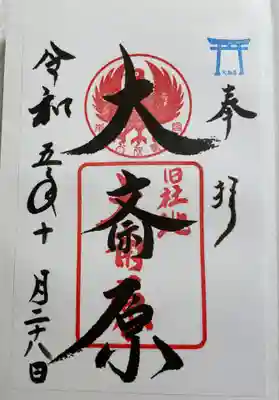 奉拝
大斎原
旧社地
令和五年十月二十八日